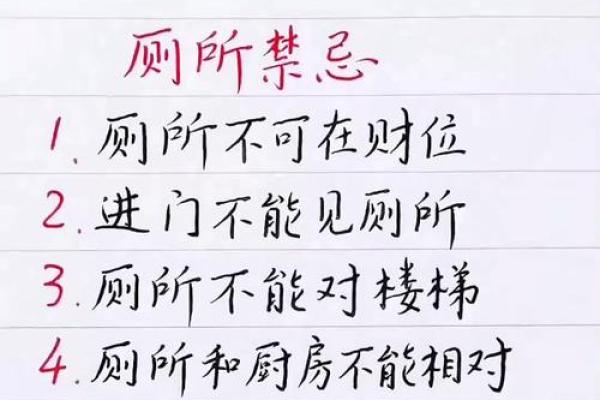 厕所禁忌
1.厕所不可在财位
2.进门不能见厕所
3.厕所不能对楼梯
4.厕所和厨房不能相对